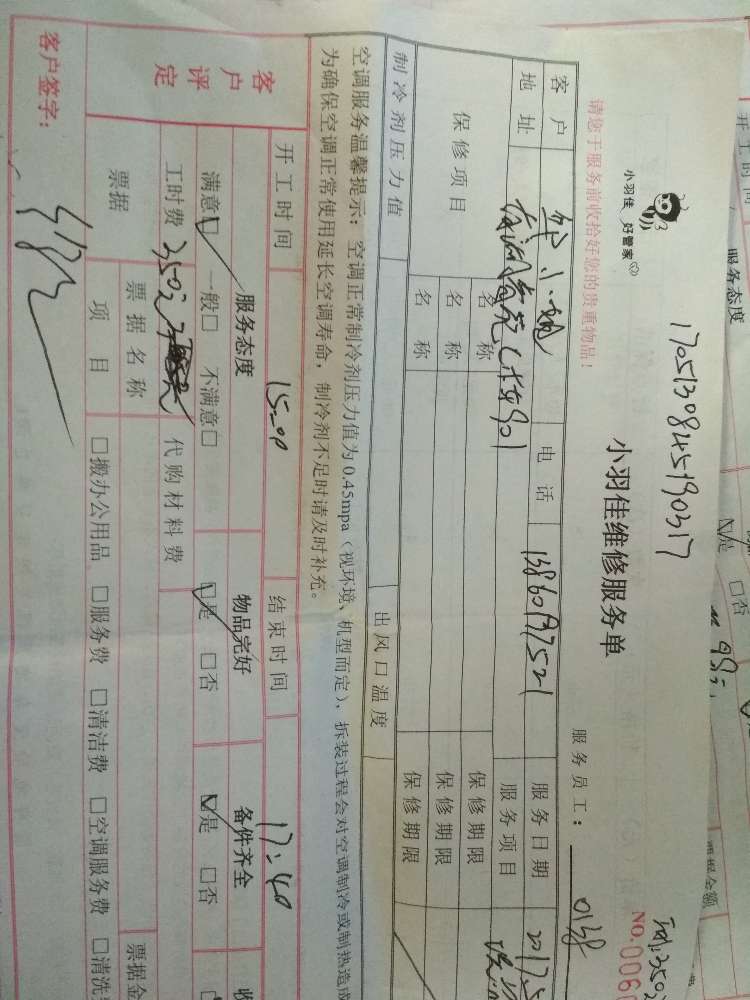 1705130845190317
小羽佳 好管家
小羽佳维修服务单
NO.006
请您于服务前收拾好您的贵重物品！
服务员工： 0138
客户 电话 13860197521 服务日期 2017.5
地址 901 服务项目
保修项目 名称 保修期限
名称 保修期限
名称 保修期限
制冷剂压力值 出风口温度
空调服务温馨提示：空调正常制冷剂压力值为0.45mpa（视环境、机型而定），拆装过程会对空调制冷或制热造成
为确保空调正常使用延长空调寿命，制冷剂不足时请及时补充。
开工时间 15:00 结束时间 17:40
客户评定 服务态度 物品完好 备件齐全 收
满意☑ 一般□ 不满意□ ☑是 □否 ☑是 □否
工时费 350元 代购材料费
票据 票据名称 票据金
项目 □搬办公用品 □服务费 □清洁费 □空调服务费 □清洗
客户签字：
开工时间
服务态度
☑是 □否
票据金额